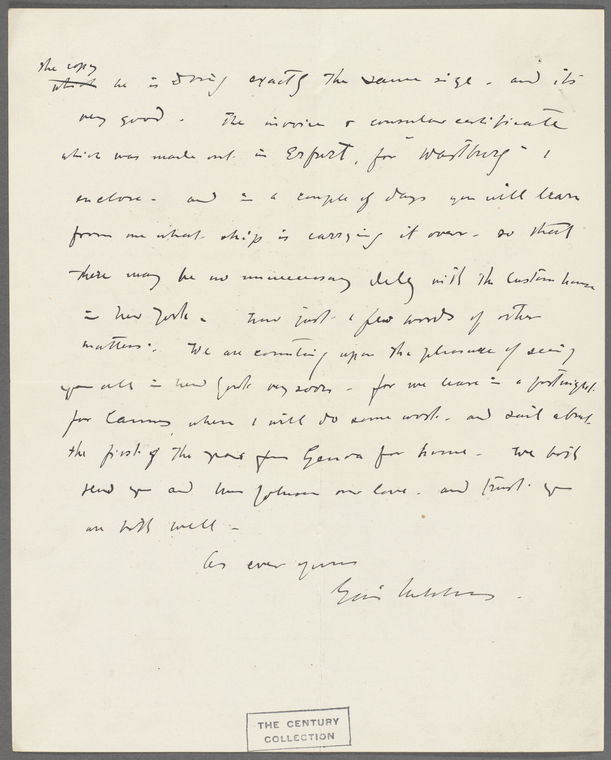 the copy
which he is doing exactly the same size - and its
very good - The invoice & consular certificate
which was made out in Erfurt, for "Wartburg" I
enclose - and in a couple of days you will learn
from me what ship is carrying it over - so that
there may be no unnecessary delay with the Custom house
in New York - Now just a few words of other
matters - We are counting upon the pleasure of seeing
you all in New York very soon - for we leave in a fortnight
for Cannes, where I will do some work - and sail about
the first of the year from Genoa for home - We both
send you and Mrs Johnson our love - and trust you
are both well -
As ever yours
THE CENTURY
COLLECTION